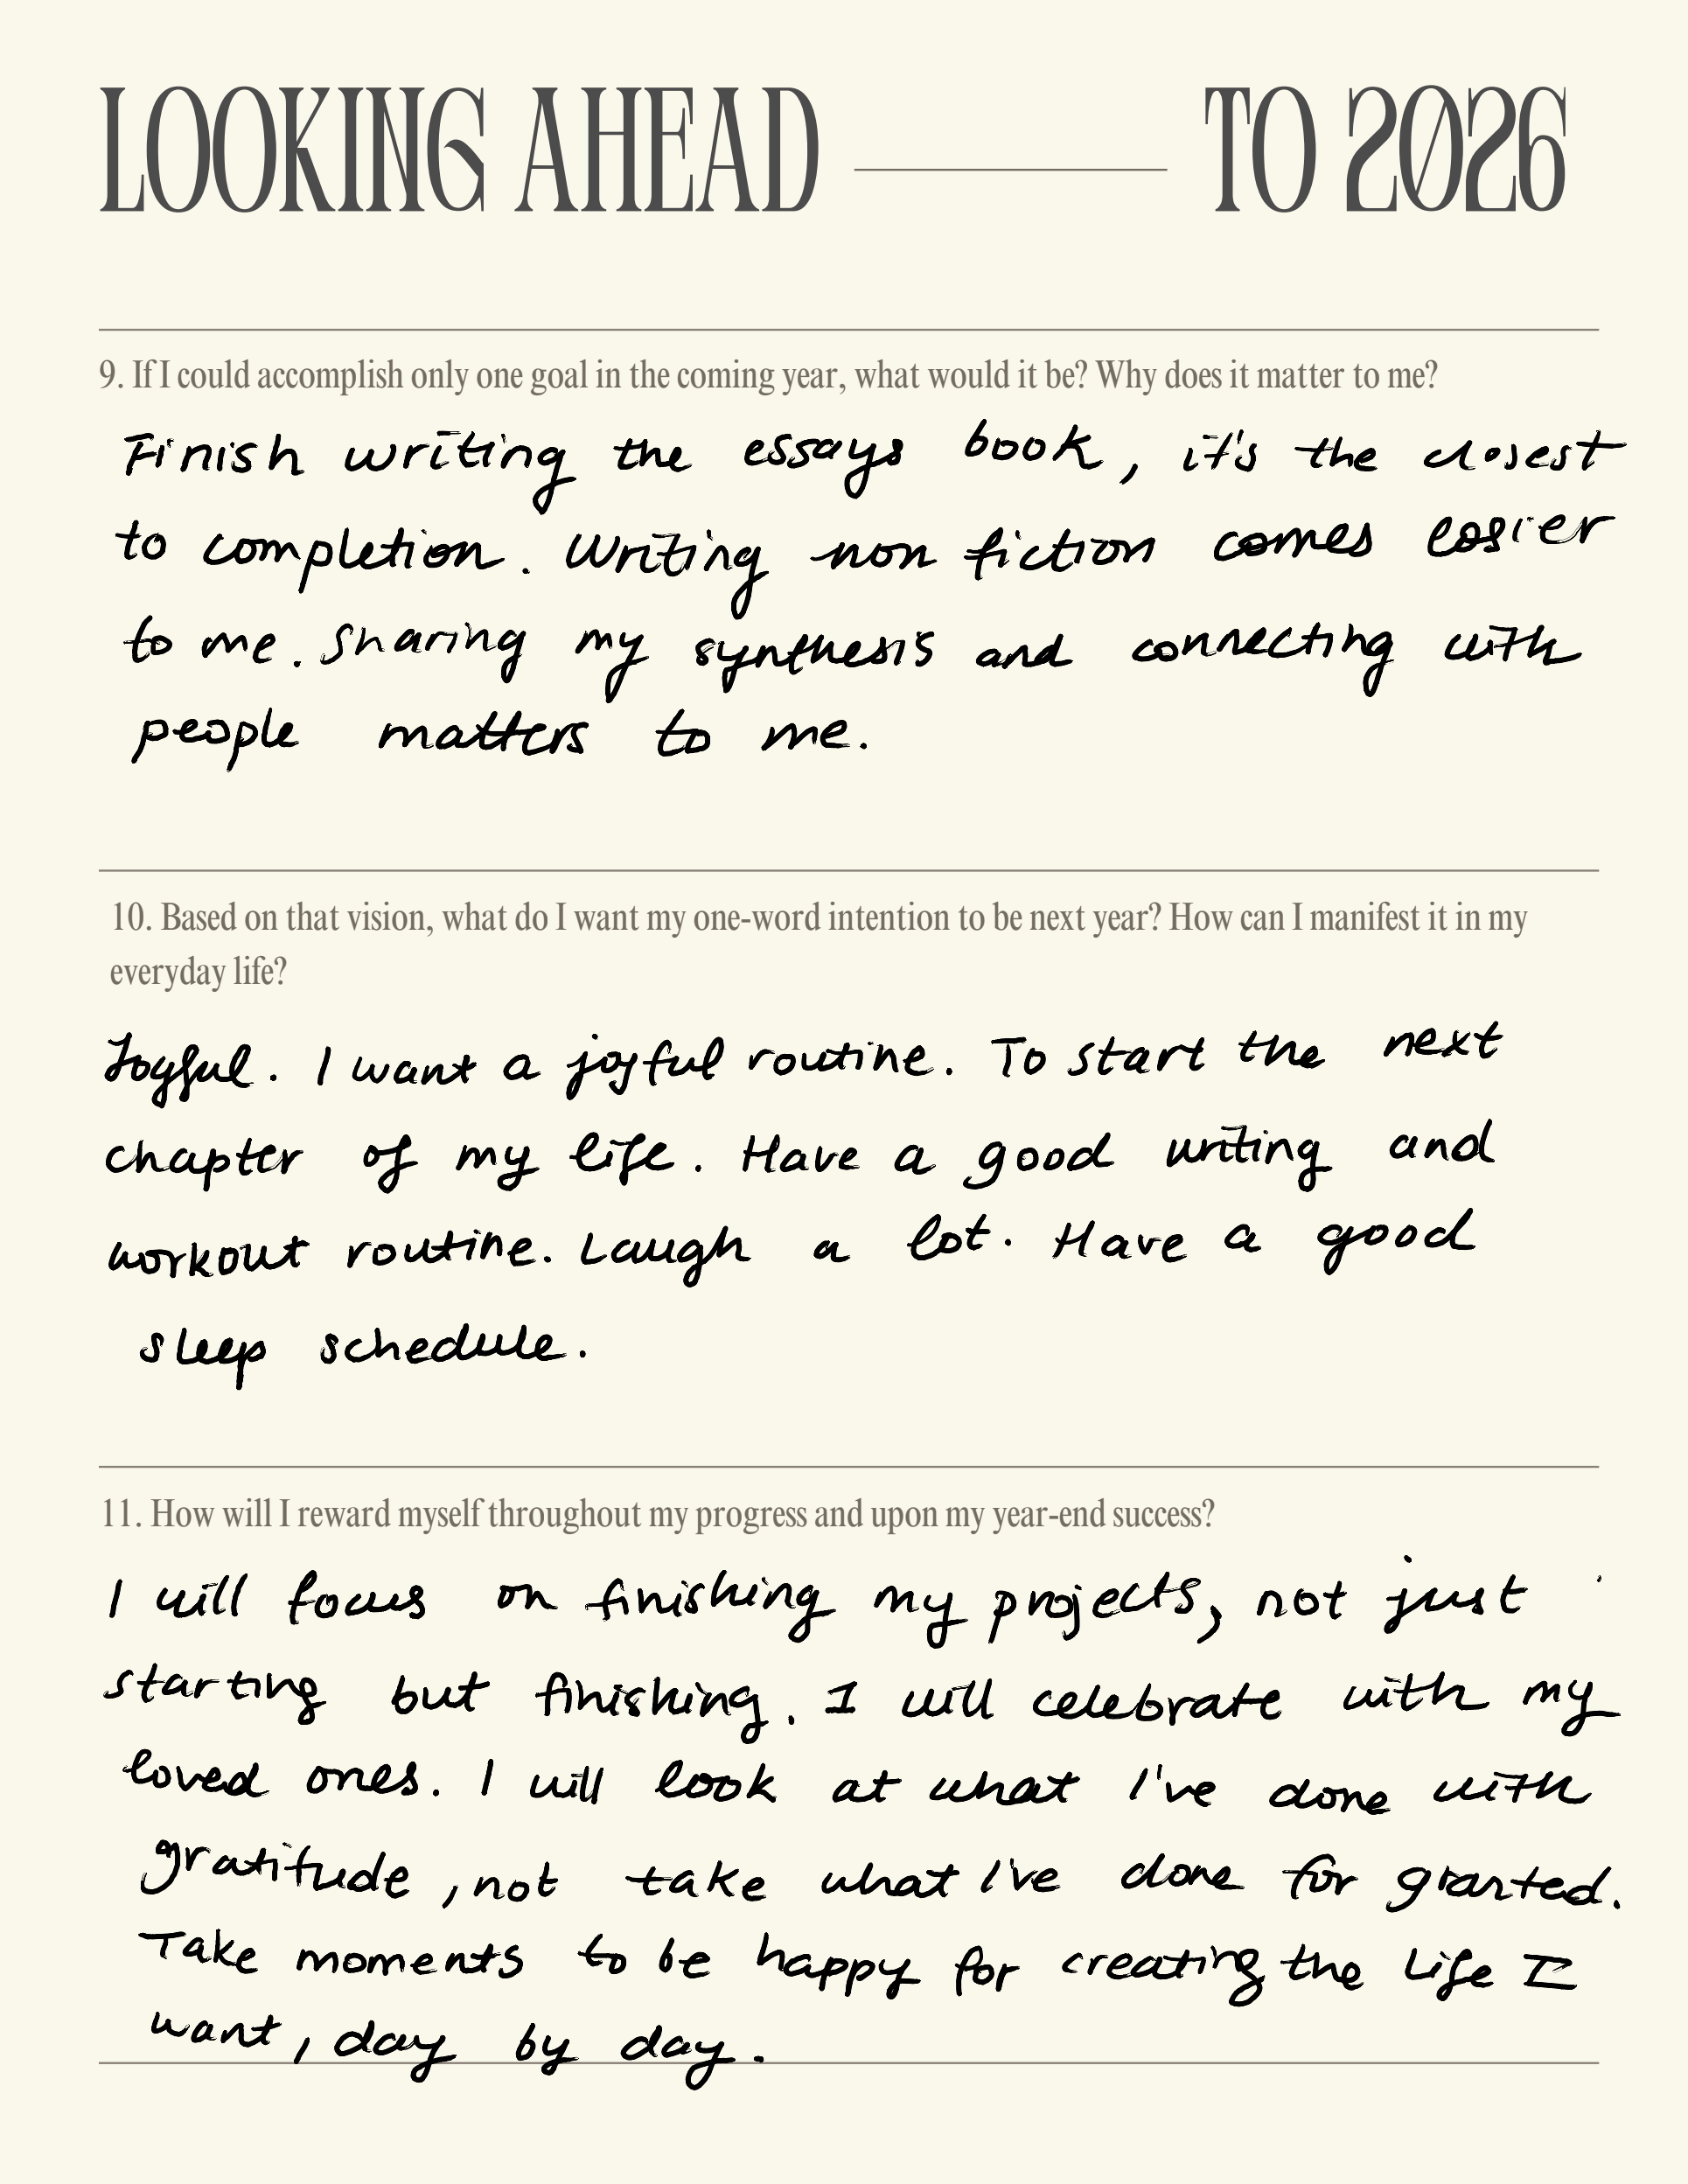 LOOKING AHEAD TO 2026
9. If I could accomplish only one goal in the coming year, what would it be? Why does it matter to me?
Finish writing the essays book, it's the closest
to completion. Writing non fiction comes easier
to me. Sharing my synthesis and connecting with
people matters to me.
10. Based on that vision, what do I want my one-word intention to be next year? How can I manifest it in my
everyday life?
Joyful. I want a joyful routine. To start the next
chapter of my life. Have a good writing and
workout routine. Laugh a lot. Have a good
sleep schedule.
11. How will I reward myself throughout my progress and upon my year-end success?
I will focus on finishing my projects, not just
starting but finishing. I will celebrate with my
loved ones. I will look at what I've done with
gratitude, not take what I've done for granted.
Take moments to be happy for creating the life I
want, day by day.